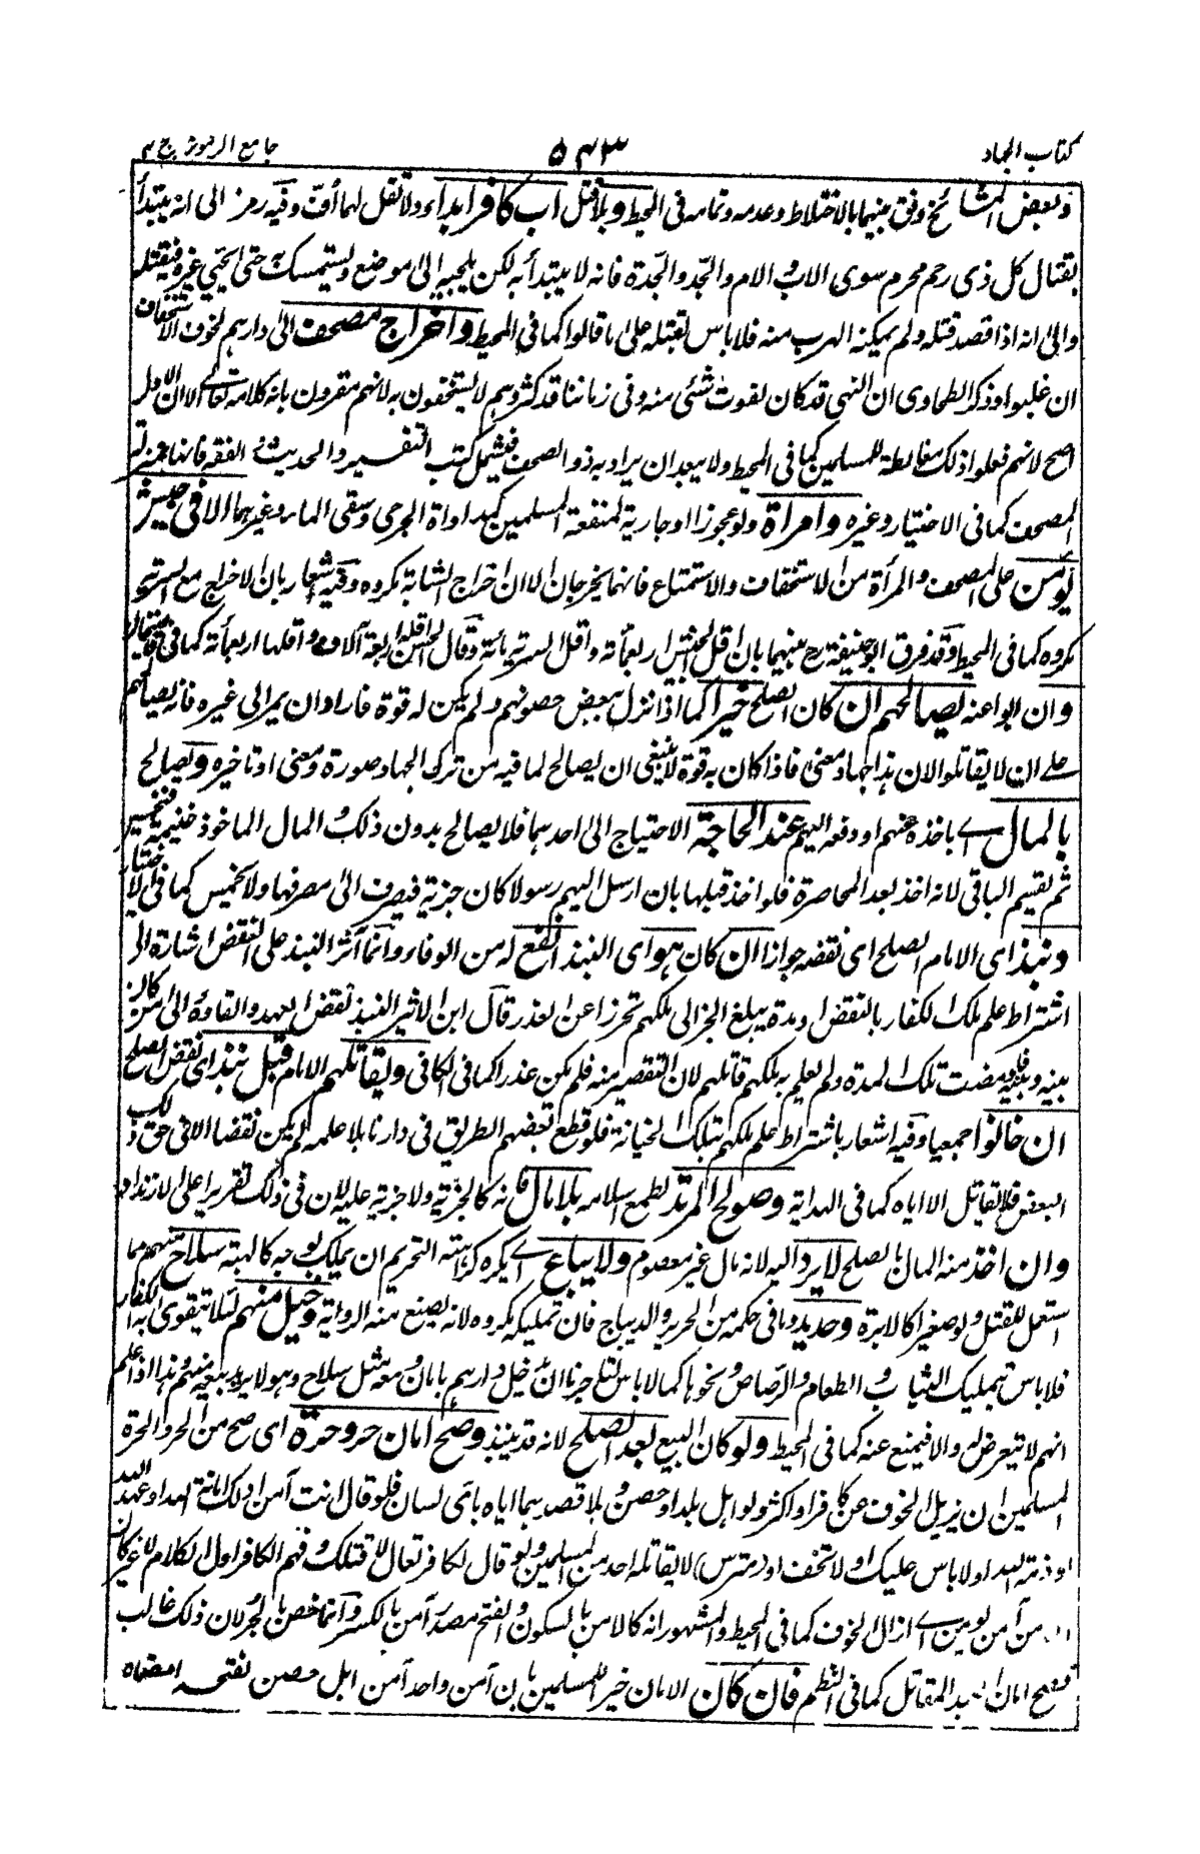 كتاب الجهاد ٥٤٣ جامع الرموز ج ٢
وبعض المشائخ وفق بينهما بالاختلاط وعدمه وتمامه فى المحيط وبلا قتل اب كافر ابداء ولا تقل لهما أفّ وفيه رمز الى انه يبتدأ
بقتال كل ذى رحم محرم سوى الاب والام والجد والجدة فانه لا يبتدأ به لكن يلجيه الى موضع ويستمسك حتى يجئ غيره فيقتله
والى انه اذا قصد قتله ولم يمكنه الهرب منه فلا باس بقتله على ما قالوا كما فى المحيط واخراج مصحف الى دارهم لخوف الاستخفاف
ان غلبوا وذكر الطحاوى ان النهى قد كان لفوت شئ منه وفى زماننا قد كثر وهم لا يستخفون به لانهم مقرون بانه كلامه تعالى الا ان الاول
اصح لانهم فعلوا ذلك مغايظة للمسلمين كما فى المحيط ولا يبعد ان يراد به ذو الصحف فيشمل كتب التفسير والحديث و الفقه فانها بمنزلة
المصحف كما فى الاختيار وغيره وامرأة ولو عجوزا او جارية لمنفعة المسلمين كمداواة الجرحى وسقى الماء وغيرهما الا فى جيش
يؤمن على المصحف والمرأة من الاستخفاف والاستمتاع فانهما يخرجان الا ان اخراج الشابة مكروه وفيه اشعار بان الاخراج مع السرية
مكروه كما فى المحيط وقد فرق ابو حنيفة رح بينهما بان اقل الجيش اربعمأة واقل السرية مائة وقال الحسن اقله اربعة آلاف واقلها اربعمأة كما فى
وان ابوا عنه يصالحهم ان كان الصلح خيرا كما اذا نزل ببعض حصونهم ولم يكن له قوة فاراد ان يمر الى غيره فانه يصالحهم
على ان لا يقاتلوا لان هذا جهاد معنى فاذا كان به قوة لا ينبغى ان يصالح لما فيه من ترك الجهاد صورة ومعنى او تاخيره ويصالح
بالمال اى باخذه منهم او دفعه اليهم عند الحاجة الاحتياج الى احدهما فلا يصالح بدون ذلك والمال الماخوذ غنيمة فتخمس
ثم يقسم الباقى لانه اخذ بعد المحاصرة فلو اخذ قبلها بان ارسل اليهم رسولا كان جزية فيصرف الى مصرفها ولا يخمس كما فى الاختيار
ونبذ اى الامام الصلح اى نقضه جوازا ان كان هو اى النبذ انفع له من الوفاء وانما آثر النبذ على النقض اشارة الى
اشتراط علم ملك الكفار بالنقض او مدة يبلغ الخبر الى ملكهم تحرزا عن الغدر قال ابن الاثير النبذ نقض العهد والقاؤه الى من كان
بينه وبينه فلو مضت تلك المدة ولم يعلم به ملكهم قاتلهم لان التقصير منه فلم يكن غدرا كما فى الكافى ويقاتلهم الامام قبل نبذ اى نقض الصلح
ان خانوا جميعا وفيه اشعار باشتراط علم ملكهم بتلك الخيانة فلو قطع بعضهم الطريق فى دارنا بلا علمه لم يكن نقضا الا فى حق ذلك
البعض فلا يقاتل الا اياه كما فى الهداية وصولح المرتد لطمع اسلامه بلا مال فانه كالجزية ولا جزية عليه لان فى ذلك تقريرا على الارتداد
وان اخذ منه المال بالصلح لا يرد اليه لانه مال غير معصوم ولا يباع اى يكره كراهته التحريم ان يملك بوجه كالهبة سلاح منهم مما
استعمل للقتل ولو صغيرا كالابرة وحديد وما فى حكمه من الحرير والديباج فان تمليكه مكروه لانه يصنع منه الراية وخيل منهم لئلا يتقوى به الكفار
فلا باس بتمليك الثياب والطعام والرصاص ونحوها كما لا باس لتاجرنا ان يدخل دارهم بامان ومعه مثل سلاح وهو لا يريد بيعه منهم وهذا اذا علم
انهم لا يتعرضون له والا فيمنع عنه كما فى المحيط ولو كان البيع بعد الصلح لانه قد ينبذ وصح امان حر وحرة اى صح من الحر والحرة
المسلمين ان يزيل الخوف عن كافر او اكثر ولو اهل بلد او حصن وبلا قصد بهما اياه باى لسان فلو قال انت آمن او لك امانة الله او عهد الله
او ذمة الله او لا باس عليك او لا تخف او (مترس) لا يقاتله احد من المسلمين ولو قال لكافر تعال لاقتلك وفهم الكافر اول الكلام لا غير كان
من آمن يومن اى ازال الخوف كما فى المحيط والمشهور انه كالامن بالسكون والفتح مصدر آمن بالكسر وانما خص بالحر لان ذلك غالب
فيصح امان العبد المقاتل كما فى النظم فان كان الامان خير للمسلمين بان آمن واحد آمن اهل حصن نفتحه امضاه